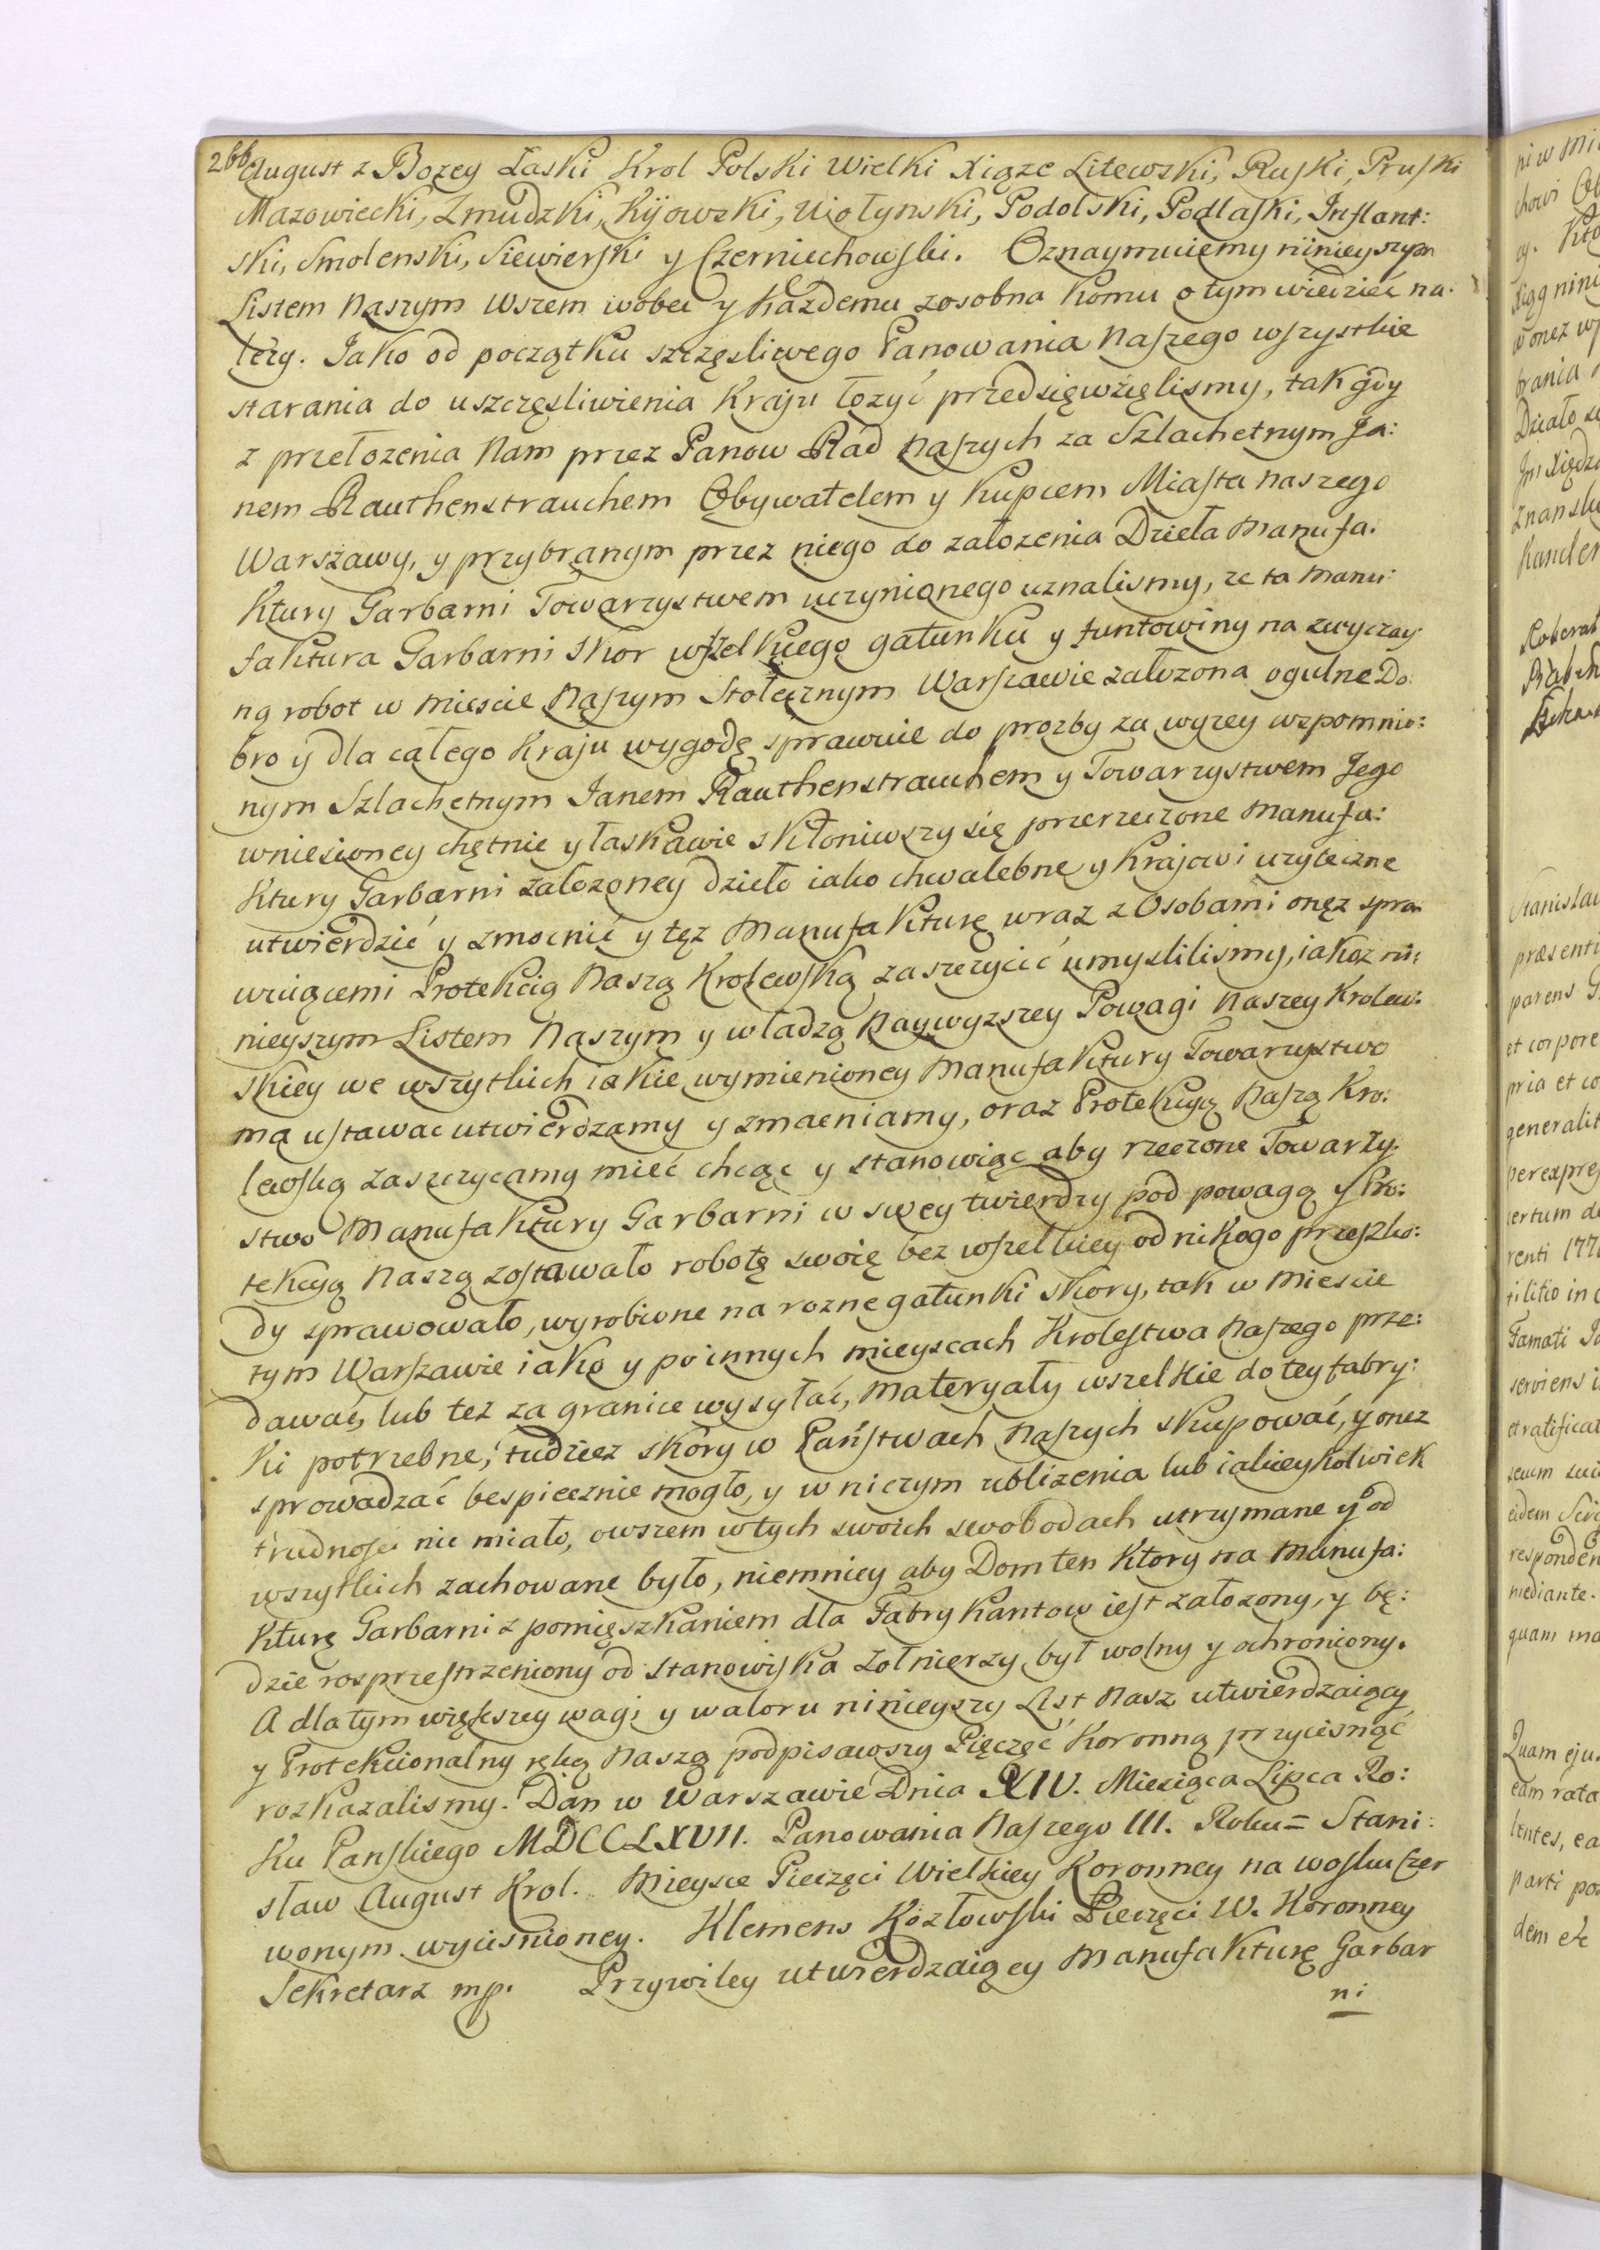 266
August z Bozey Łaski Krol Polski Wielki Xiąze Litewski, Ruski, Pruski
Mazowiecki, Zmudzki, Kijowski, Wołynski, Podolski, Podlaski, Inflant:
ski, Smolenski, Siewierski y Czerniechowski. Oznaymuiemy ninieyszym
Listem Naszym wszem wobec y Każdemu zosobna Komu o tym wiedzieć na-
leży. Jako od początku szczęsliwego Panowania Naszego wszystkie
starania do uszczęsliwienia Kraju łożyć przedsięwzięlismy, tak gdy
z przełożenia Nam przez Panow Rad Naszych za Szlachetnym Ja:
nem Rauthenstrauchem Obywatelem y Kupcem Miasta naszego
Warszawy, y przybranym przez niego do załozenia Dzieła Manufa:
Ktury Garbarni Towarzystwem uczynionego uznalismy, ze ta Manu:
faktura Garbarni Skor wszelkiego gatunku y funtowiny na zwyczay
ną robot w miescie Naszym Stołecznym Warszawie załozona ogulne Do:
bro y dla całego Kraju wygodę sprawuie do prozby za wyzey wzpomnio:
nym Szlachetnym Janem Rauthenstrauchem y Towarzystwem Jego
wniesioney chętnie y łaskawie skłoniwszy się przerzeczone Manufa:
Ktury Garbarni załozoney dzieło iako chwalebne y Krajowi uzyteczne
utwierdzić y zmocnić y tęz Manufakturę wraz z Osobami onęz spra-
wuiącemi Protekcią Naszą Krolewską zaszczycić umyslilismy, iakoz ni:
nieyszym Listem Naszym y władzą Naywyzszey Powagi Naszey Krolew:
skiey we wszytkich iakie wymienioney Manufaktury Towarzystwo
ma ustawac utwierdzamy y zmacniamy, oraz Protekcyą Naszą Kro:
lewską zaszczycamy mieć chcąc y stanowiąc aby rzeczone Towarzy
stwo Manufaktury Garbarni w swey twierdzy pod powagą y Pro:
tekcyą Naszą zostawało robotę swoię bez wszelkiey od nikogo przeszko:
dy sprawowało, wyrobione na rozne gatunki skory, tak w Miescie
tym Warszawie iako y po innych mieyscach Krolestwa Naszego prze:
dawać, lub tez za granice wysyłać, materyały wszelkie do tey fabry:
ki potrzebne, tudziez skory w Państwach Naszych skupować, y onez
sprowadzać bespiecznie mogło, y w niczym ubliżenia lub iakieykolwiek
trudnosci nie miało, owszem w tych swoich swobodach utrzymane y od
wszytkich zachowane było, niemniey aby Dom ten Ktory na Manufa:
Kturę Garbarni z pomięszkaniem dla Fabrykantow iest załozony, y bę:
dzie rosprzestrzeniony od stanowiska Zołnierzy był wolny y ochroniony.
A dla tym większey wagi y waloru ninieyszy List Nasz utwierdzaiący
y Protekcionalny ręką Naszą podpisawszy Pięczęć Koronną przycisnąć
rozkazalismy. Dan w Warszawie Dnia XIV. Miesiąca Lipca Ro:
Ku Panskiego MDCCLXVII. Panowania Naszego III. Roku = Stani:
sław August Krol. Mieysce Pieczęci Wielkiey Koronney na wosku Czer
wonym wycisnioney. Klemens Kozłowski Pieczęci W. Koronney
Sekretarz mp. Przywiley utwierdzaiący Manufakturę Garbar
ni